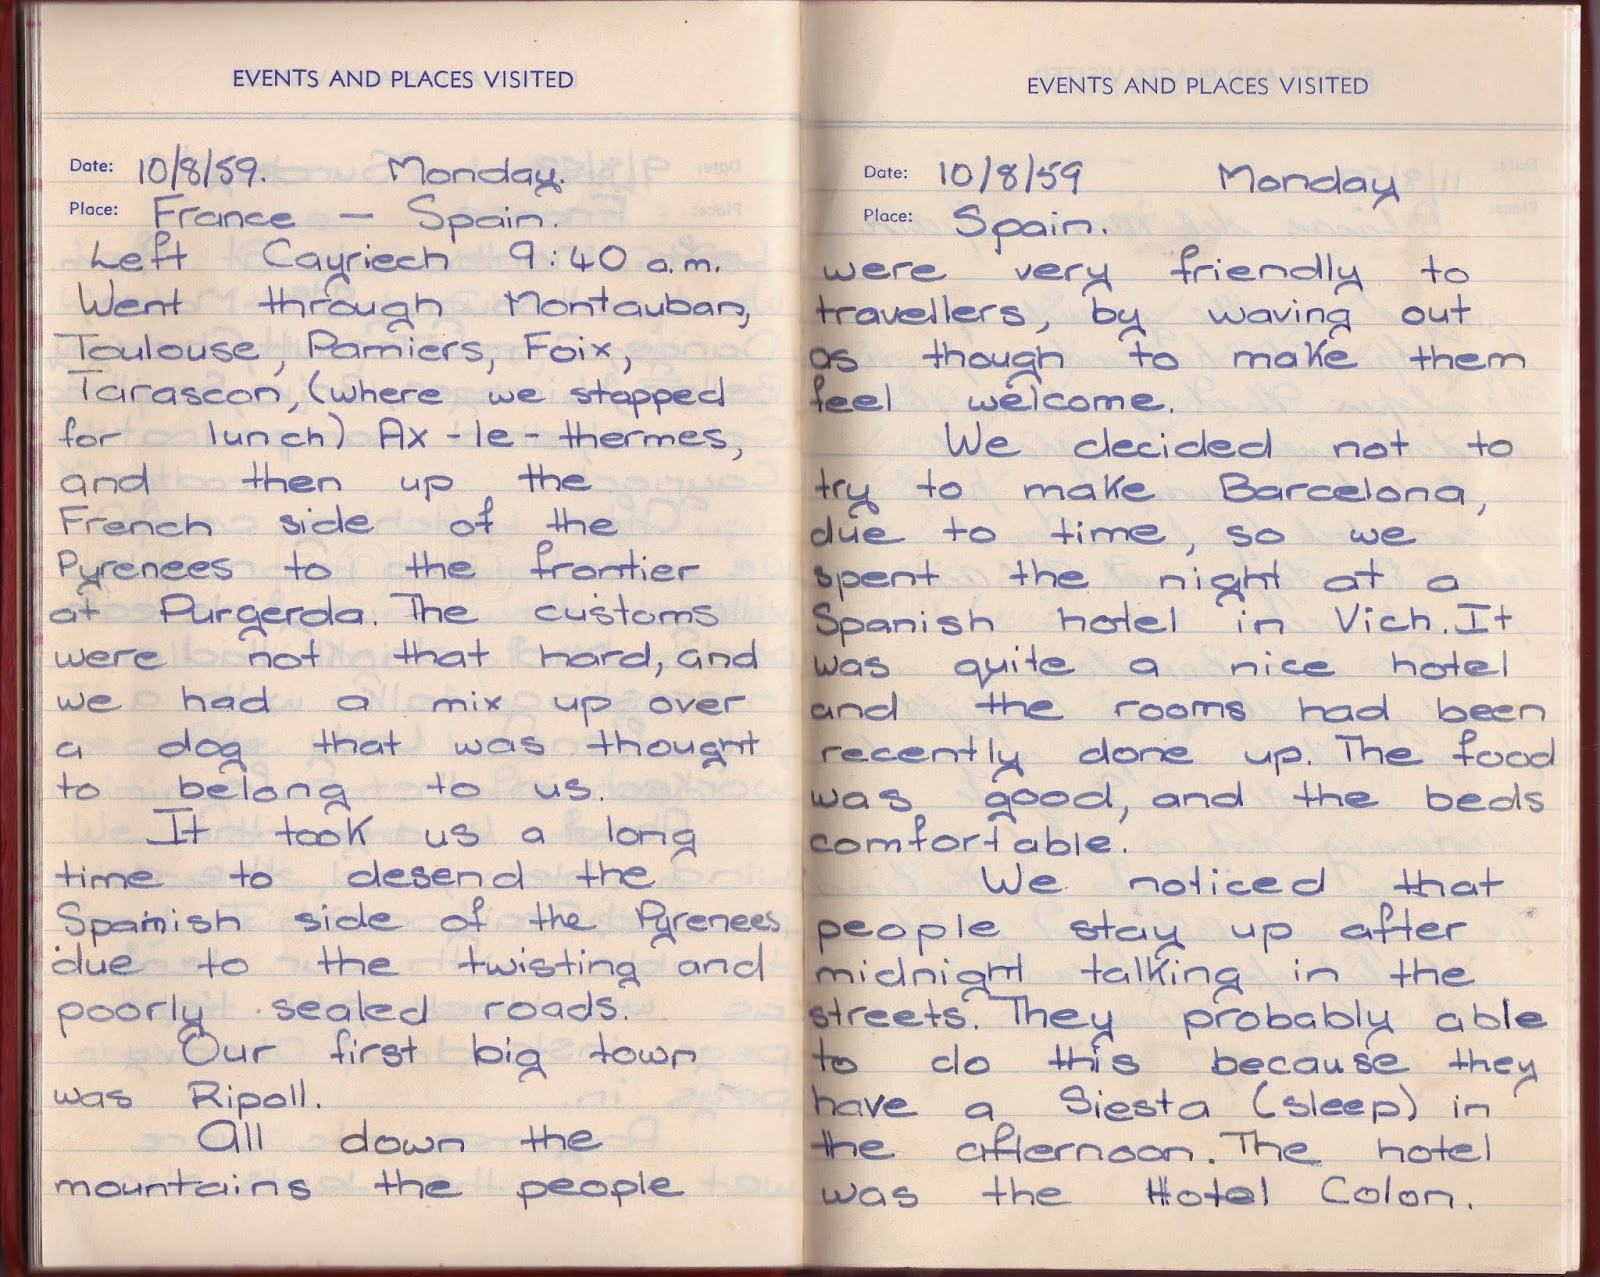 EVENTS AND PLACES VISITED
Date: 10/8/59. Monday.
Place: France — Spain.
Left Cayriech 9:40 a.m.
Went through Montauban,
Toulouse, Pamiers, Foix,
Tarascon, (where we stopped
for lunch) Ax-le-thermes,
and then up the
French side of the
Pyrenees to the frontier
at Purgerda. The customs
were not that hard, and
we had a mix up over
a dog that was thought
to belong to us.
It took us a long
time to desend the
Spanish side of the Pyrenees
due to the twisting and
poorly sealed roads.
Our first big town
was Ripoll.
All down the
mountains the people
EVENTS AND PLACES VISITED
Date: 10/8/59 Monday
Place: Spain.
were very friendly to
travellers, by waving out
as though to make them
feel welcome.
We decided not to
try to make Barcelona,
due to time, so we
spent the night at a
Spanish hotel in Vich. It
was quite a nice hotel
and the rooms had been
recently done up. The food
was good, and the beds
comfortable.
We noticed that
people stay up after
midnight talking in the
streets. They probably able
to do this because they
have a Siesta (sleep) in
the afternoon. The hotel
was the Hotel Colon.